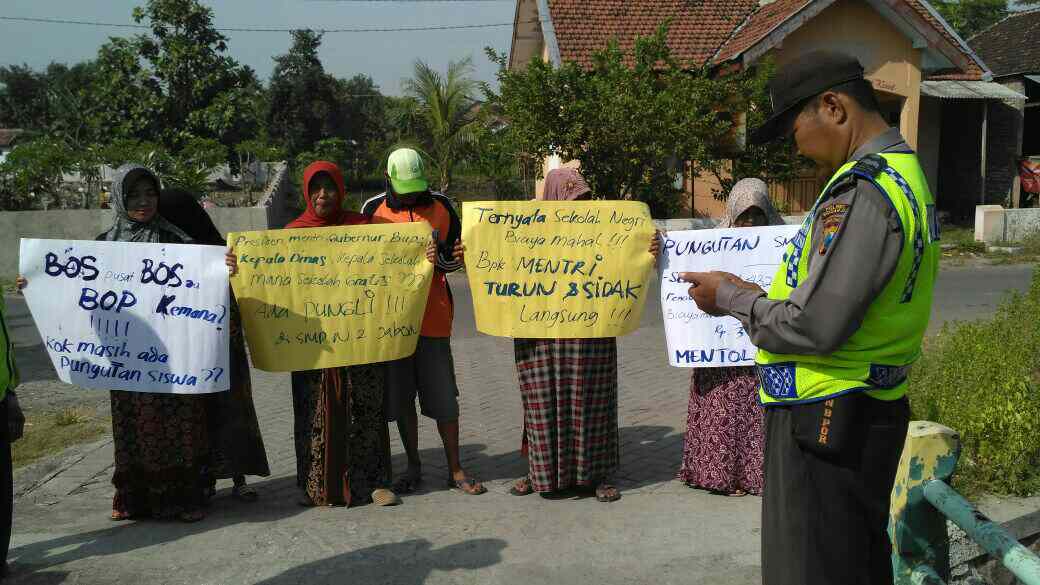 BOS Pusat BOS DA
BOP Kemana?
!!!!!
Kok masih ada
Pungutan siswa??
Presiden mentri Gubernur Bupati
Kepala Dinas, Kepala Sekolah
mana Sekolah Gratis???
Ada PUNGLI!!!
di SMP N 2 Jabon
Ternyata Sekolah Negri
Biaya mahal!!!
Bpk MENTRI
TURUN & SIDAK
Langsung!!!
PUNGUTAN SM
Biaya
Rp
MENTOL